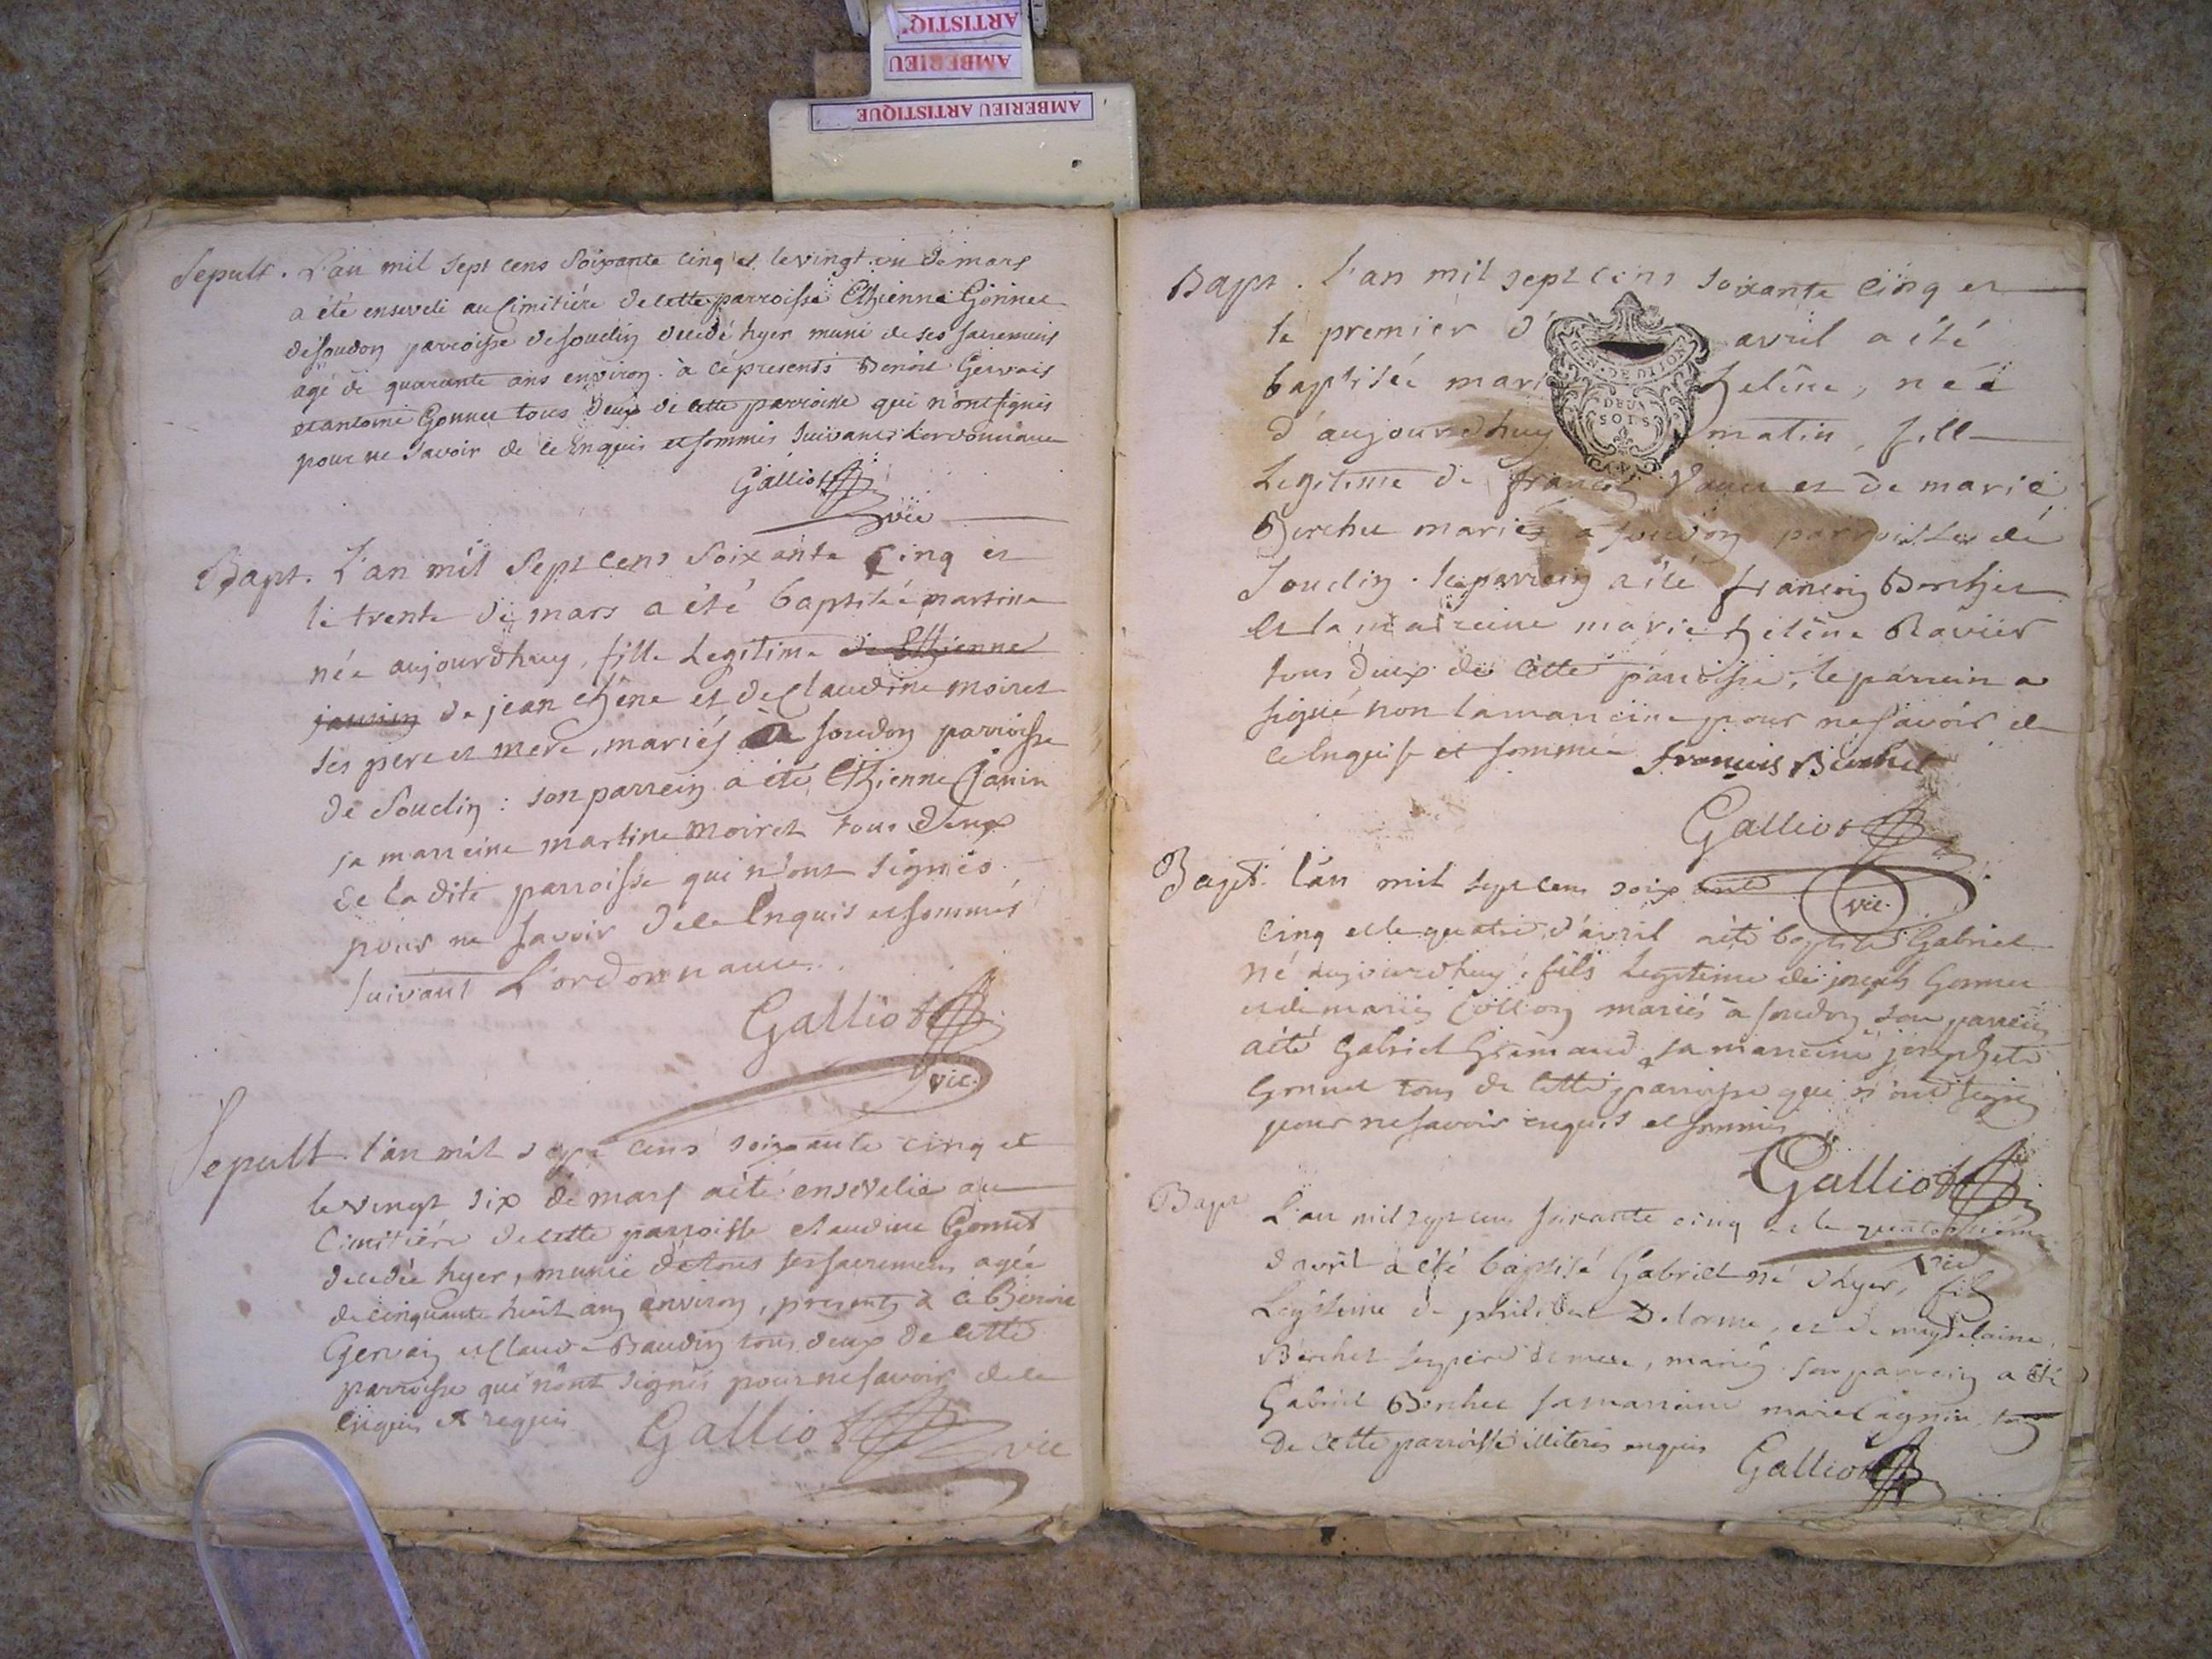 ARTISTIQ
AMBERIEU
AMBERIEU ARTISTIQUE
Sepult. L'an mil sept cens soixante cinq et le vingt un de mars
a été enseveli au Cimitiére de cette parroisse Ethienne Gonnet
de soudon parroisse de souclin decedé hyer muni de ses sacremens
agé de quarante ans environ. à ce presents Benoit Gervais
et antoine Gonnet tous deux de cette parroisse qui n'ont signés
pour ne savoir de ce Enquis et sommés suivant L'ordonnance
Galliot
vic
Bapt. L'an mil Sept cens Soixante Cinq et
le trente de mars a été baptisée martine
née aujourdhuy, fille Legitime de Ethienne
janin de jean chêne et de Claudine moiret
ses pere et mere, mariés à soudon parroisse
de Souclin : son parrein a été Ethienne Janin
sa marreine martine Moiret tous deux
de la dite parroisse qui n'ont signés
pour ne savoir de ce Enquis et sommés
suivant L'ordonnance.
Galliot
vic.
Sepult. l'an mil sept cens soixante cinq et
le vingt six de mars a été ensevelie au
Cimitiére de cette parroisse Claudine Gonnet
decedée hyer, munie de tous ses sacremens agée
de cinquante huit ans environ, presents à ce Benoit
Gervais et Claude Baudin tous deux de cette
parroisse qui n'ont signés pour ne savoir de ce
enquis et requis
Galliot
vic
Bapt. L'an mil sept cens soixante cinq et
le premier d' avril a été
baptisée mari helêne, née
d'aujourdhuy matin, fille
Legitime de francois et de marie
Berchet mariés a soudon parroisse de
Souclin. le parrein a été francois Berchet
et la marreine marie helêne Ravier
tous deux de cette parroisse, le parrein a
signé non la marreine pour ne savoir de
ce Enquise et sommée francois Berchet
Galliot
vic.
Bapt. l'an mil sept cens soixante
cinq et le quatre d'avril a été baptisé Gabriel
né aujourdhuy, fils Legitime de joseph Gonnet
et de marie Collon mariés à soudon son parrein
a été Gabriel Grêmaud sa marreine josephete
Gonnet tous de cette parroisse qui n'ont signé
pour ne savoir enquis et sommés
Galliot
vic
Bapt L'an mil sept cens soixante cinq et le
d'avril a été baptisé Gabriel né d'hyer, fils
Legitime de philibert Delorme, et de magdelaine
Berchet ses pere et mere, mariés. son parrein a été
Gabriel Berchet sa marreine marie Cagnin tous
de cette parroisse illiterés enquis
Galliot
DEUX
SOLS